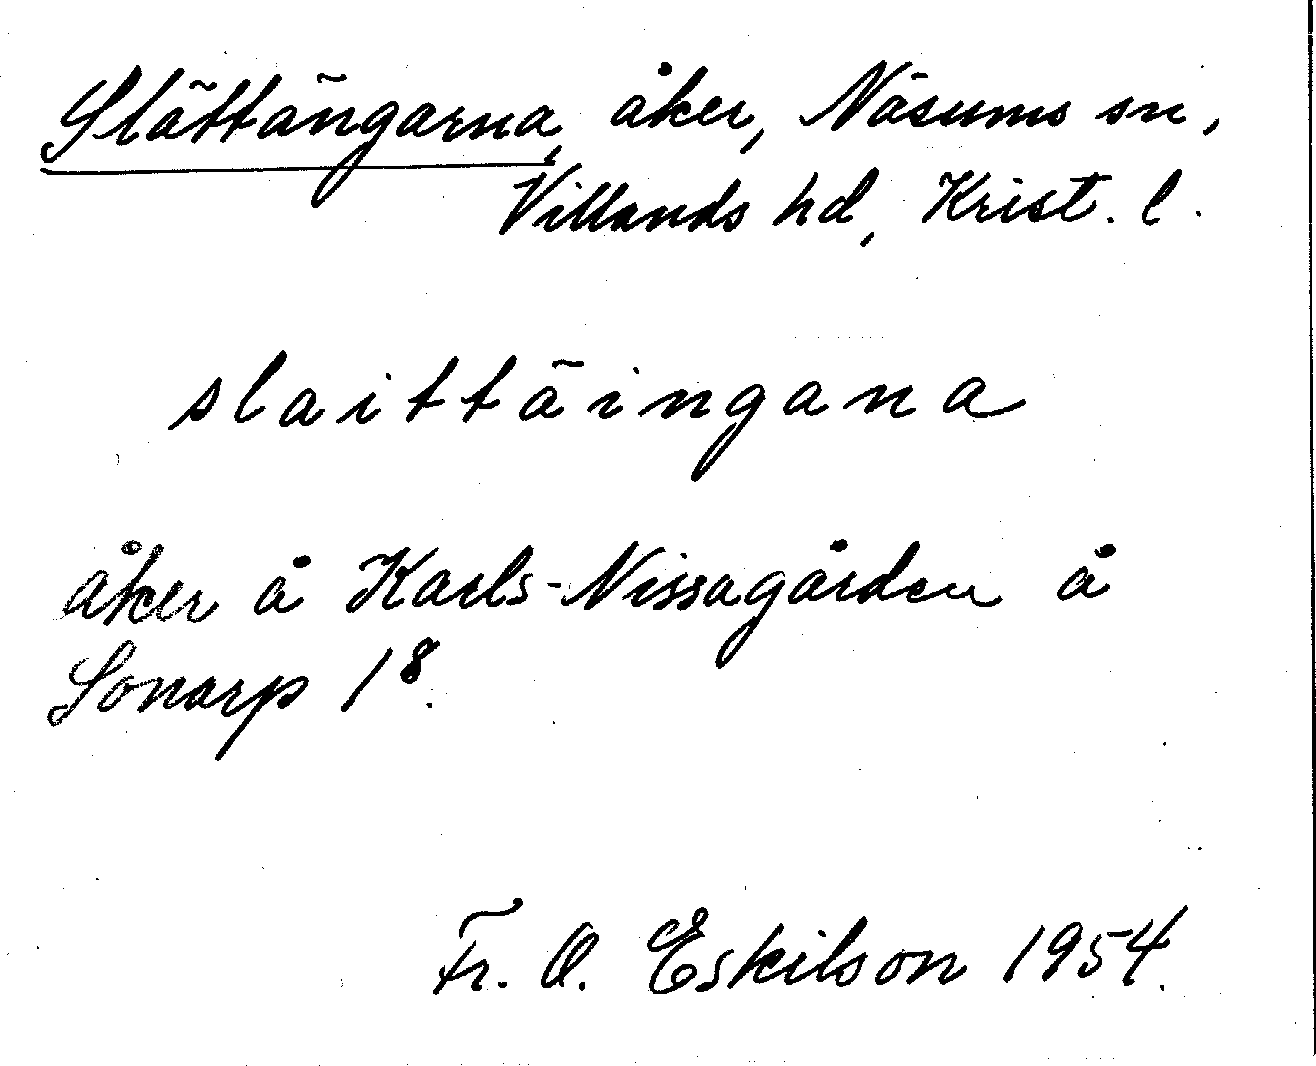 Slättängarna, åker, Näsums sn,
Villands hd, Krist. l.
slaittäingana
åker å Karls-Nissagården å
Sonarp 1⁸.
Fr. O. Eskilson 1954.